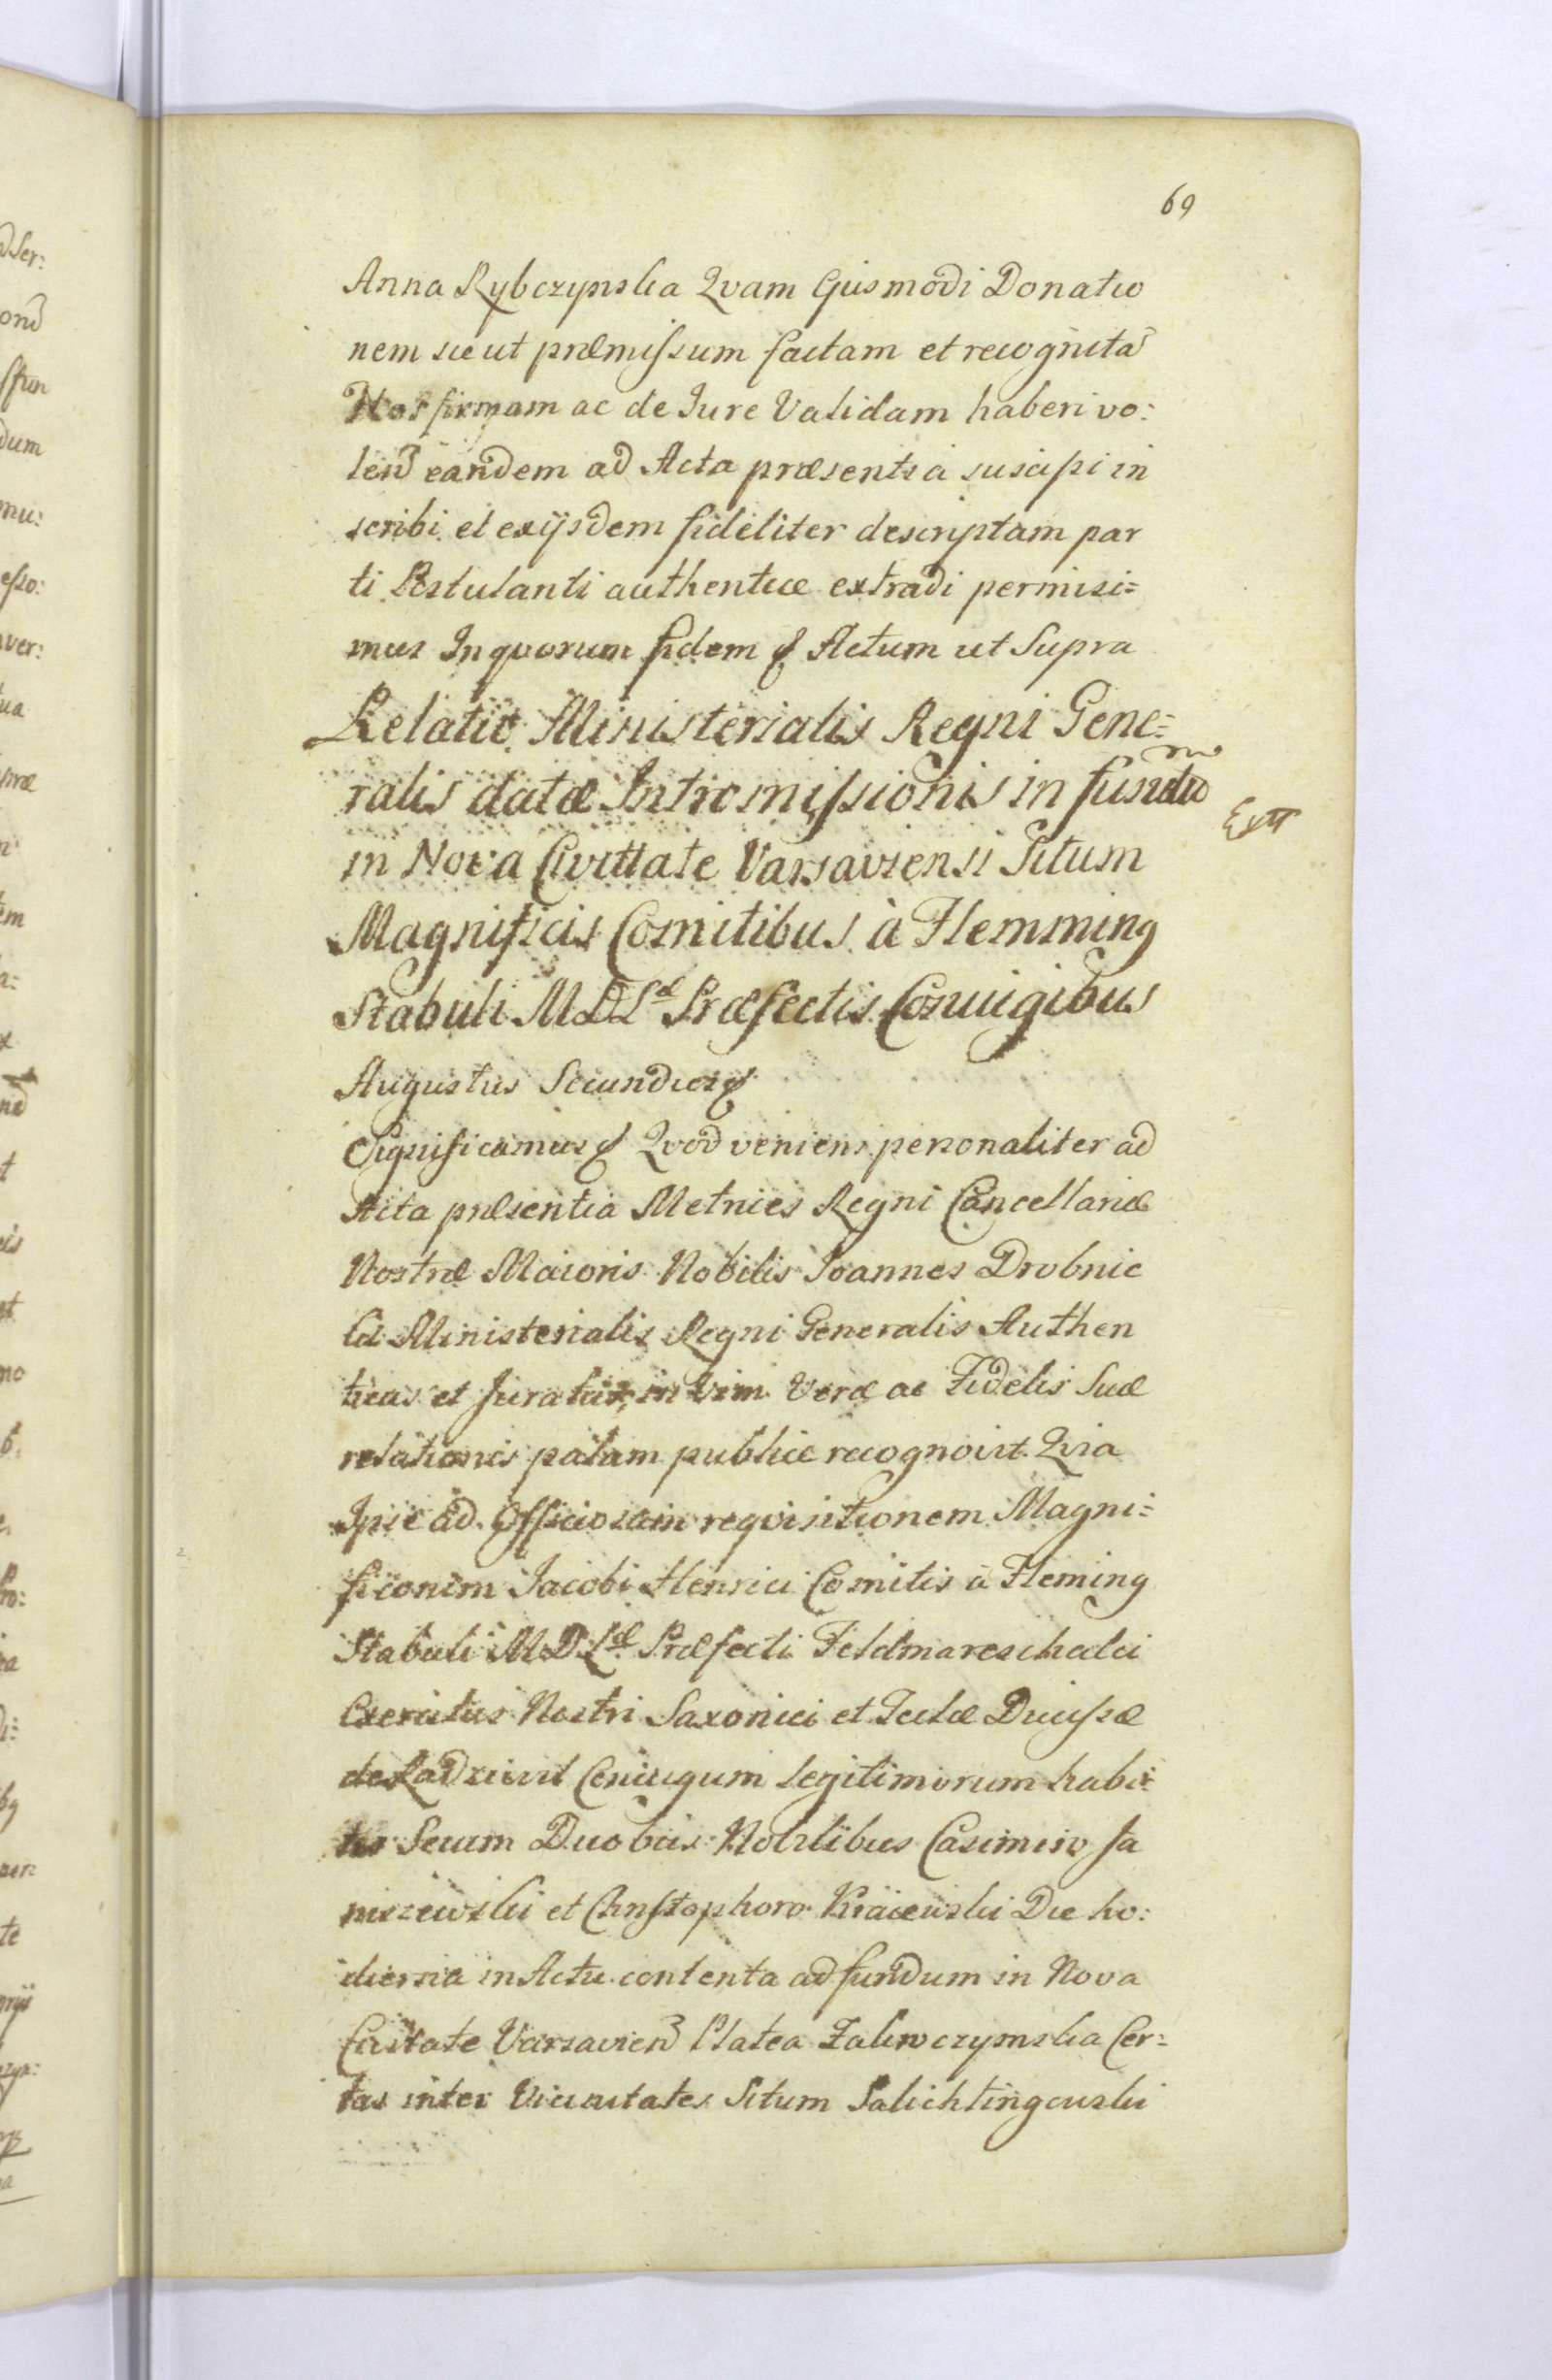 69
Anna Rybczynska Qvam Ejusmodi Donatio
nem sicut præmissum factam et recognitã
Nos firmam ac de Iure Validam haberi vo:
leñ eandem ad Acta præsentia suscipi in
scribi et exijsdem fideliter descriptam par
ti Postulanti authentice extradi permisi=
mus In quorum fidem & Actum ut Supra
Relatio Ministerialis Regni Gene=
ralis datæ Intromissionis in fundũ
Extt
in Nova Civitate Varsaviensi Situm
Magnificis Comitibus à Flemming
Stabuli M D L Præfectis Coniugibus
Augustus Secundus &
Significamus & Qvod veniens personaliter ad
Acta præsentia Metrices Regni Cancellariæ
Nostræ Maioris Nobilis Ioannes Drobnic
ki Ministerialis Regni Generalis Authen
ticus et Juratus, in Vim Veræ ac Fidelis Suæ
relationis palam publice recognovit Qvia
Ipse ad Officiosam reqvisitionem Magni=
ficorum Jacobi Henrici Comitis à Fleming
Stabuli M D L Præfecti Feldmareschalci
Exercitus Nostri Saxonici et Teclæ Ducissæ
de Radziwil Coniugum legitimorum habi
tis Secum Duobus Nobilibus Casimiro Ja
niszewski et Christophoro Kraiewski Die ho:
dierna in Actu contenta ad fundum in Nova
Civitate Varsavieñ Platea Zakroczymska Cer=
tas inter Vicinitates Situm Salichtingowski